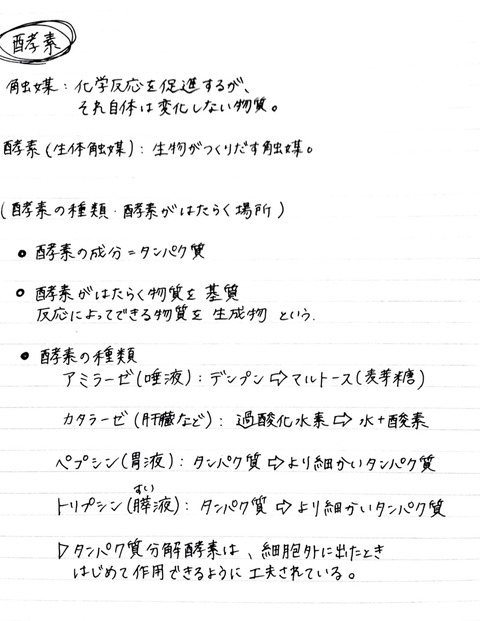 酵素
触媒：化学反応を促進するが、
それ自体は変化しない物質。
酵素(生体触媒)：生物がつくりだす触媒。
(酵素の種類・酵素がはたらく場所)
● 酵素の成分=タンパク質
● 酵素がはたらく物質を 基質
反応によってできる物質を 生成物 という.
● 酵素の種類
アミラーゼ(唾液)：デンプン⇨マルトース(麦芽糖)
カタラーゼ(肝臓など)：過酸化水素⇨水+酸素
ペプシン(胃液)：タンパク質⇨より細かいタンパク質
すい
トリプシン(膵液)：タンパク質⇨より細かいタンパク質
▷タンパク質分解酵素は、細胞外に出たとき
はじめて作用できるように工夫されている。